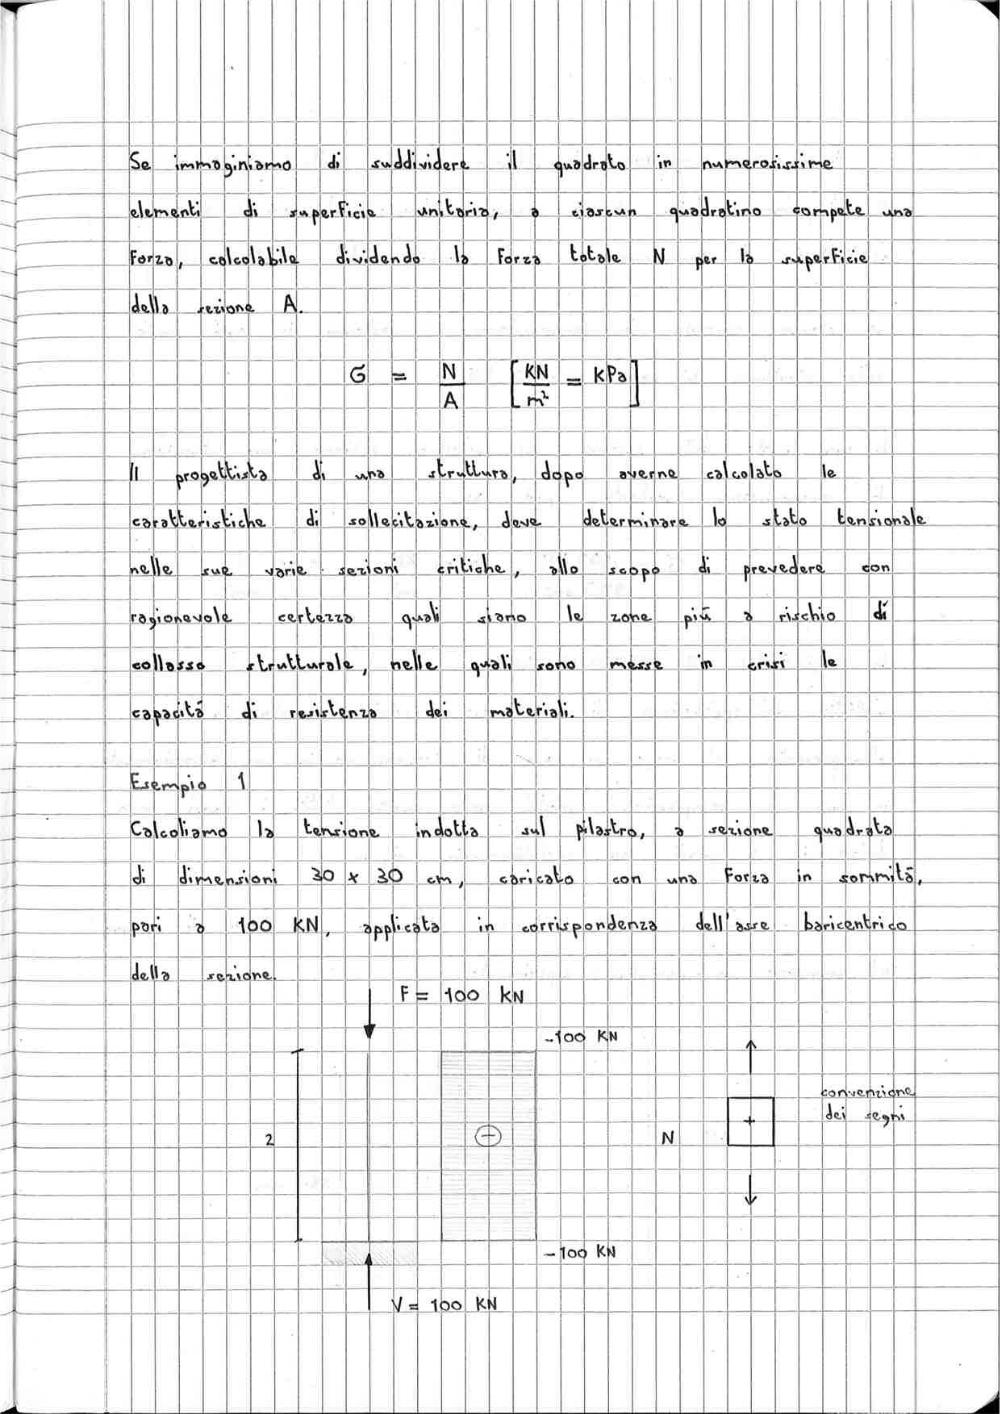 Se immaginiamo di suddividere il quadrato in numerosissime
elementi di superficie unitaria, a ciascun quadratino compete una
Forza, calcolabile dividendo la Forza totale N per la superficie
della sezione A.
σ = N/A [KN/m² = kPa]
Il progettista di una struttura, dopo averne calcolato le
caratteristiche di sollecitazione, deve determinare lo stato tensionale
nelle sue varie sezioni critiche, allo scopo di prevedere con
ragionevole certezza quali siano le zone più a rischio di
collasso strutturale, nelle quali sono messe in crisi le
capacità di resistenza dei materiali.
Esempio 1
Calcoliamo la tensione indotta sul pilastro, a sezione quadrata
di dimensioni 30 x 30 cm, caricato con una Forza in sommità,
pari a 100 KN, applicata in corrispondenza dell'asse baricentrico
della sezione.
F = 100 KN
-100 KN
convenzione
dei segni
+
2
−
N
-100 KN
V = 100 KN